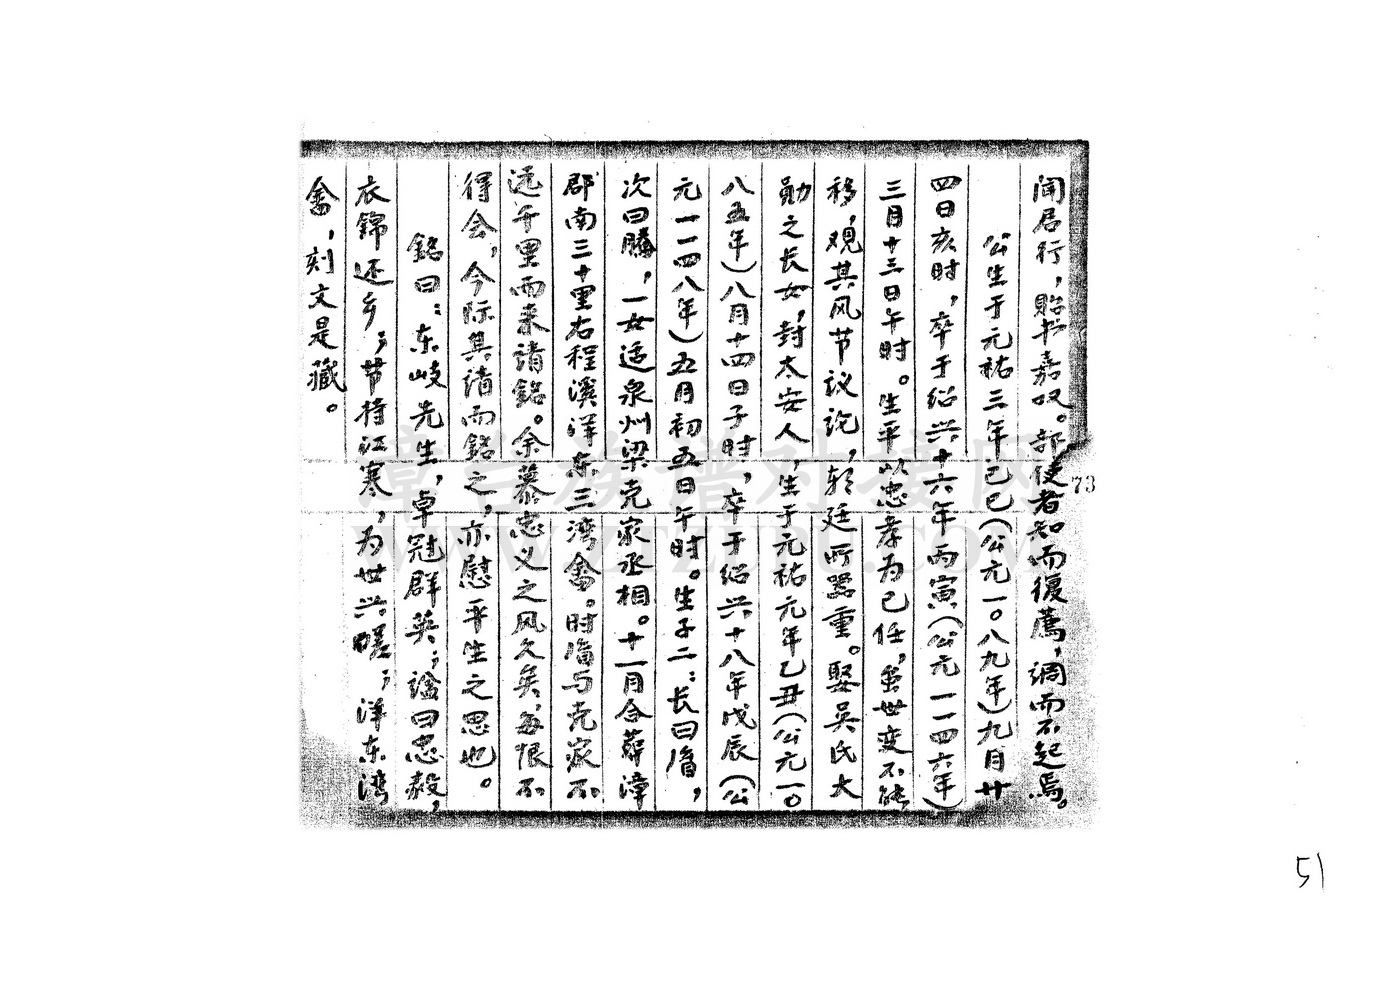 闻居行，贻书嘉叹。部使者知而復薦，调而不起焉。
公生于元祐三年己巳（公元一〇八九年）九月廿
四日亥时，卒于绍兴十六年丙寅（公元一一四六年）
三月十三日午时。生平以忠孝为己任，虽世变不能
移，观其风节议论，朝廷所器重。娶吴氏大
勋之长女，封太安人，生于元祐元年乙丑（公元一〇
八五年）八月十四日子时，卒于绍兴十八年戊辰（公
元一一四八年）五月初五日午时。生子二：长曰脩，
次曰騰，一女适泉州梁克家丞相。十一月合葬漳
郡南三十里右程溪洋东三湾畲。时脩与克家不
远千里而来请銘。余慕忠义之风久矣，每恨不
得会，今际其请而銘之，亦慰平生之思也。
銘曰：东岐先生，卓冠群英；谥曰忠毅，
衣錦还乡；节持江寒，为世兴嗟；洋东湾
畲，刻文是藏。
73
漳台族谱对接网
WWW.ZTZUPU.COM
51